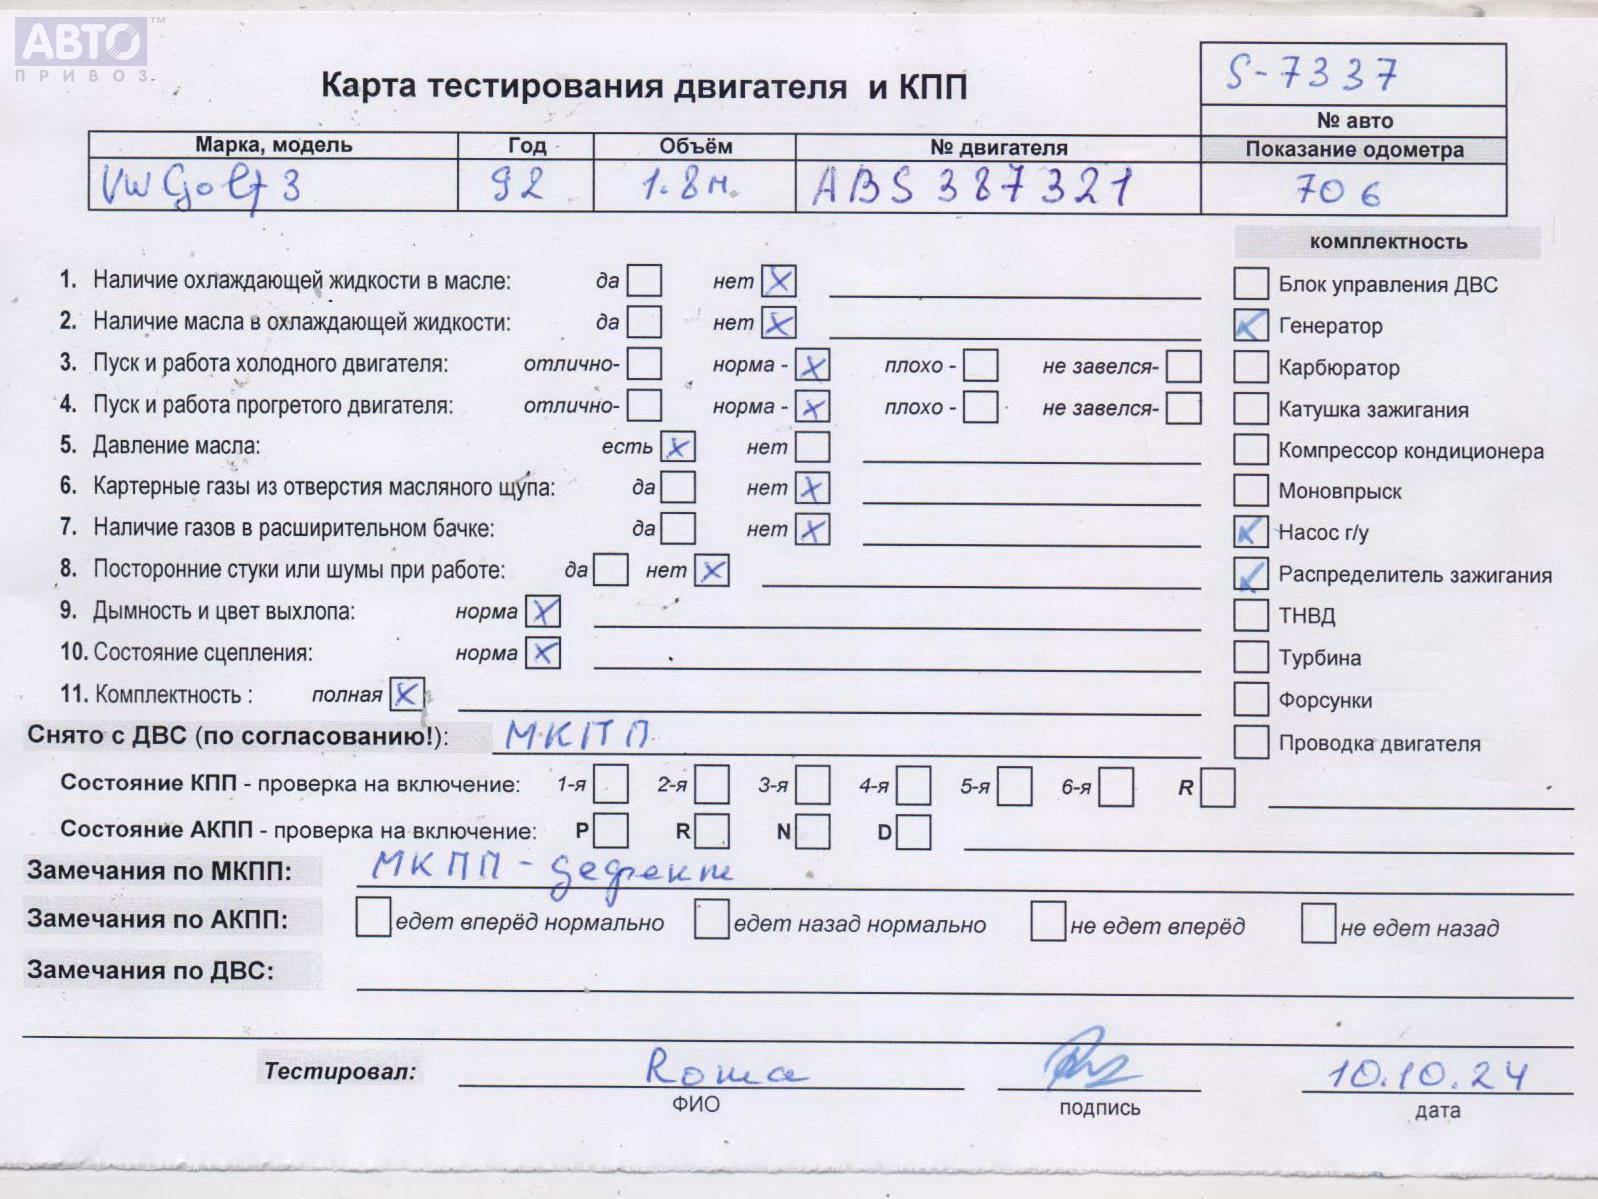 АВТО™
ПРИВОЗ
Карта тестирования двигателя и КПП
S-7337
№ авто
Марка, модель Год Объём № двигателя Показание одометра
VW Golf 3 92 1.8м. ABS387321 706
комплектность
1. Наличие охлаждающей жидкости в масле: да нет X
Блок управления ДВС
2. Наличие масла в охлаждающей жидкости: да нет X
Генератор
3. Пуск и работа холодного двигателя: отлично- норма - X плохо - не завелся-
Карбюратор
4. Пуск и работа прогретого двигателя: отлично- норма - X плохо - не завелся-
Катушка зажигания
5. Давление масла: есть X нет
Компрессор кондиционера
6. Картерные газы из отверстия масляного щупа: да нет X
Моновпрыск
7. Наличие газов в расширительном бачке: да нет X
Насос г/у
8. Посторонние стуки или шумы при работе: да нет X
Распределитель зажигания
9. Дымность и цвет выхлопа: норма X
ТНВД
10. Состояние сцепления: норма X
Турбина
11. Комплектность : полная X
Форсунки
Снято с ДВС (по согласованию!): МКПП
Проводка двигателя
Состояние КПП - проверка на включение: 1-я 2-я 3-я 4-я 5-я 6-я R
Состояние АКПП - проверка на включение: P R N D
Замечания по МКПП: МКПП - дефект
Замечания по АКПП: едет вперёд нормально едет назад нормально не едет вперёд не едет назад
Замечания по ДВС:
Тестировал: Roma 10.10.24
ФИО подпись дата